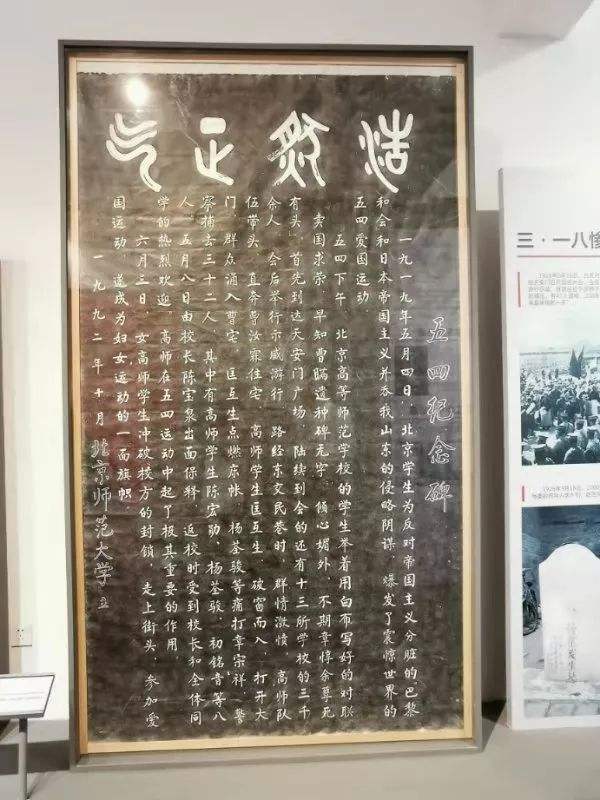 浩然正气
五四纪念碑
一九一九年五月四日，北京学生为反对帝国主义分赃的巴黎
和会和日本帝国主义并吞我山东的侵略阴谋，爆发了震惊世界的
五四爱国运动。
五四下午，北京高等师范学校的学生举着用白布写好的对联
“卖国求荣，早知曹瞒遗种碑无字，倾心媚外，不期章惇余孽死
有头”，首先到达天安门广场，陆续到会的还有十三所学校的三千
余人。会后举行示威游行，路经东交民巷时，群情激愤，高师队
伍带头，直奔曹汝霖住宅，高师学生匡互生，破窗而入，打开大
门，群众涌入曹宅，匡互生点燃床帐，杨荃骏等痛打章宗祥，警
察捕去三十二人，其中有高师学生陈宏勋、杨荃骏、初铭音等八
人。五月八日由校长陈宝泉出面保释，返校时受到校长和全体同
学的热烈欢迎。高师在五四运动中起了极其重要的作用。
六月三日，女高师学生冲破校方的封锁，走上街头，参加爱
国运动，遂成为妇女运动的一面旗帜。
一九九二年十月 北京师范大学 立
三·一八惨